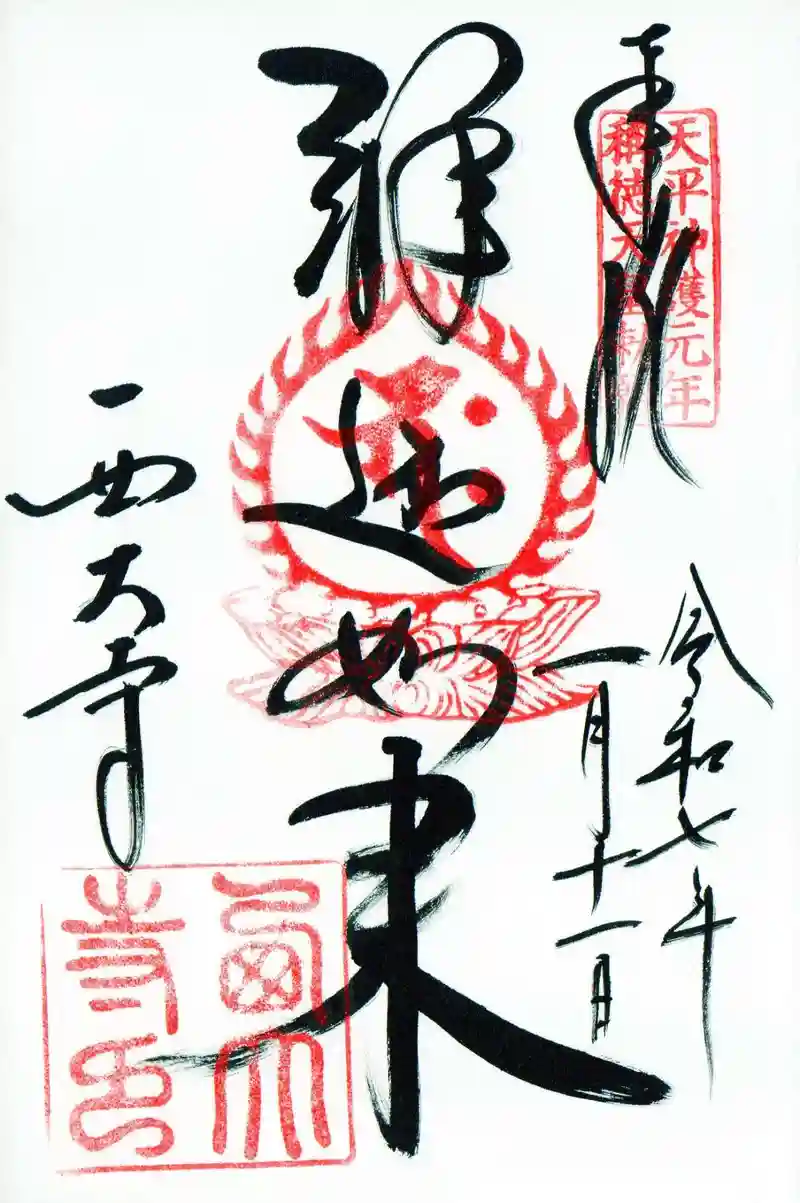 奉拝
天平神護元年
稱徳天皇勅願
令和七年
一月十一日
釈迦如来
西大寺
西大寺印